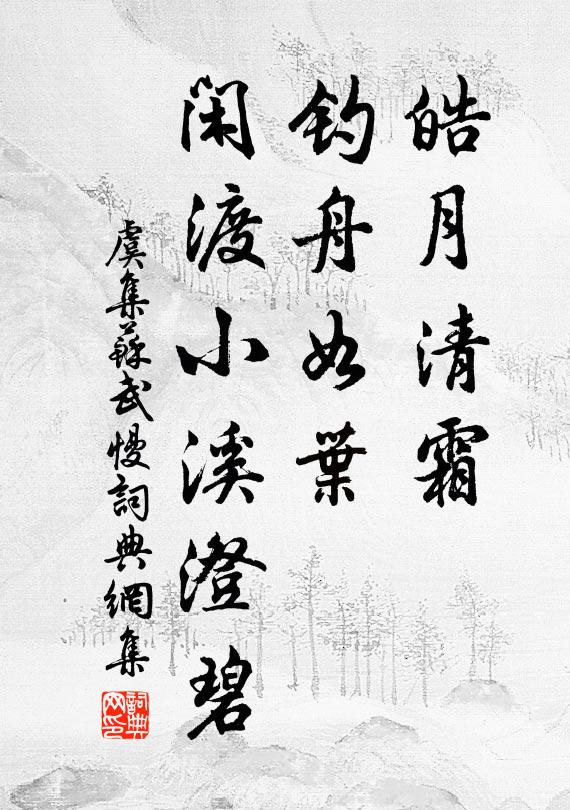 皓月清霜
釣舟如葉
閑渡小溪澄碧
虞集蘇武慢詞典網集
詞典网印